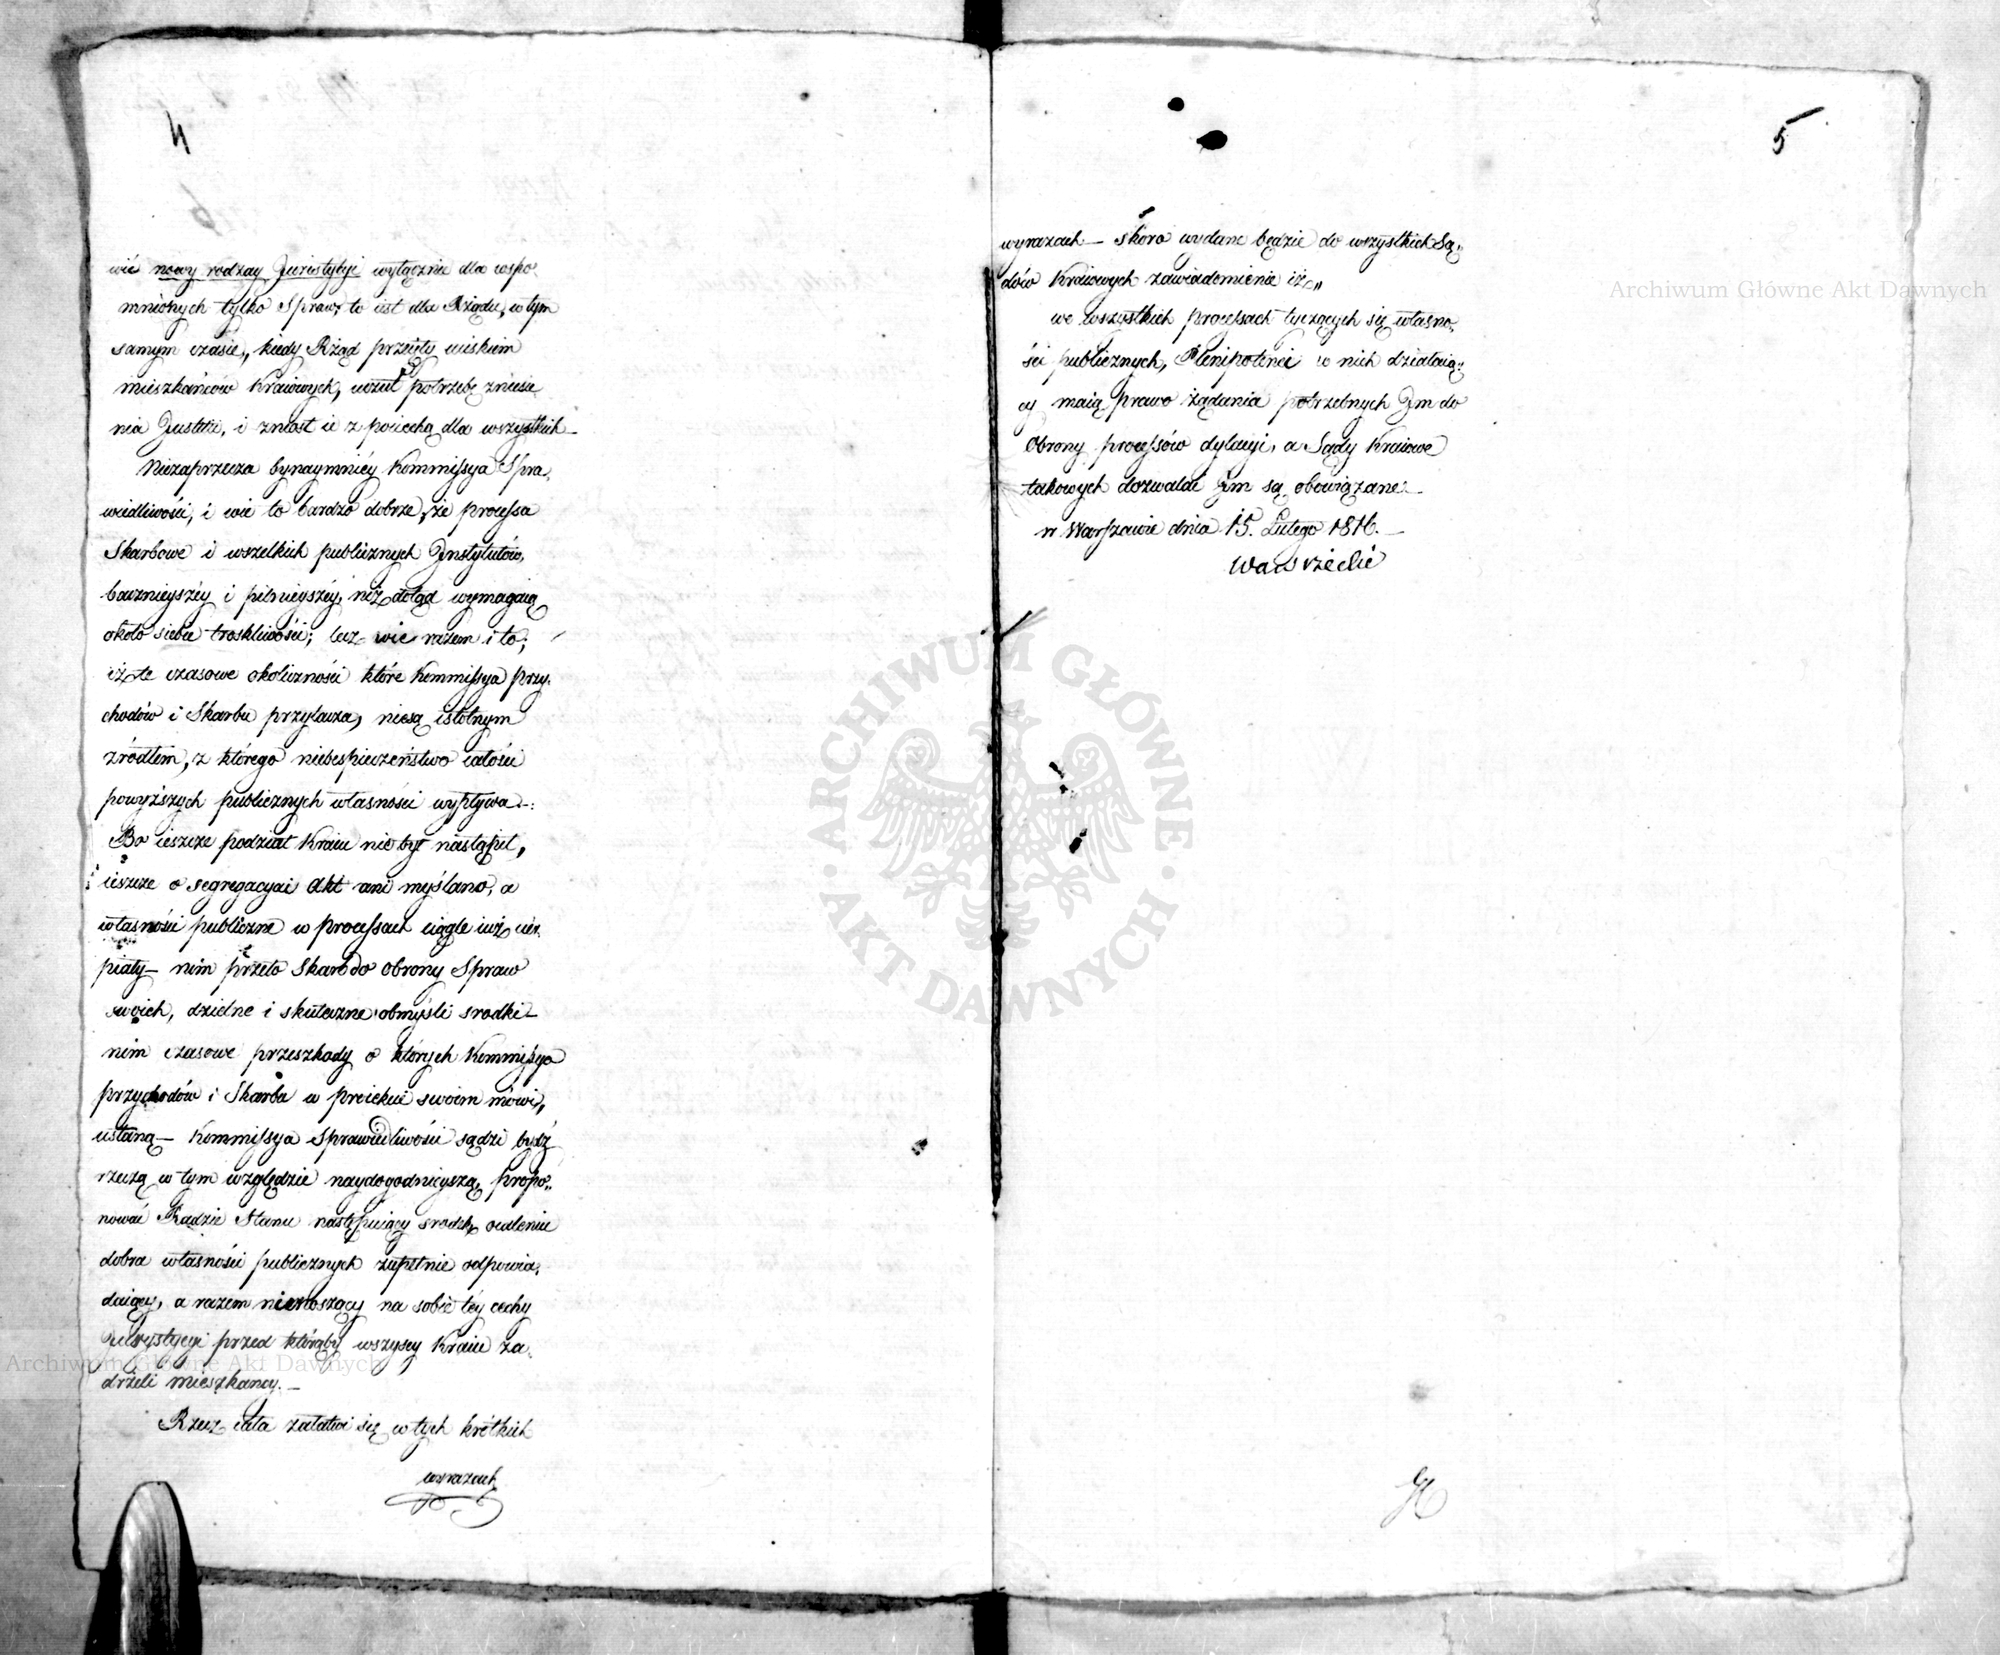 4
wić nowy rodzay Juristycyi wyłącznie dla wspo,
mnionych tylko Spraw, to iest dla Rządu, w tym
samym czasie, kiedy Rząd przeięty uiskiem
mieszkańców Kraiowych, uczuł potrzebę zniesie
nia Justitii, i zniosł ie z pociechą dla wszystkich—
Niezaprzecza bynaymniéy Kommissya Spra,
wiedliwości, i wie to bardzo dobrze, że processa
Skarbowe i wszelkich publicznych Instytutów,
bacznieyszéy i pilnieyszéy, niż dotąd wymagaią
około siebie troskliwości; lecz wie razem i to;
iż te czasowe okoliczności które Kommissya przy,
chodów i Skarbu przytacza, niesą istotnym
zródłem, z którego niebespieczeństwo całości
powyższych publicznych własności wypływa—:
Bo ieszcze podział Kraiu nie był nastąpił,
ieszcze o segregacyai Akt ani myślano, a
własności publiczne w processach ciągle iuż cier,
piały— nim przeto Skarb do obrony Spraw
swoich, dzielne i skuteczne obmyśli srodki—
nim czasowe przeszkody o których Kommissya
przychodów i Skarbu w proiekcie swoim mówi,,
ustaną— Kommissya Sprawiedliwości sądzi bydź
rzeczą w tym względzie naydogodnieyszą, propo,,
nować Radzie Stanu następuiący srodek, ocaleniu
dobra własności publicznych zupełnie odpowia,
daiący, a razem nienoszący na sobie téy cechy
Jurystycyi przed którąby wszyscy Kraiu za,
drżeli mieszkancy.—
Rzecz cała załatwi się w tych krótkich
wyrazach
5
wyrazach— skoro wydane będzie do wszystkich Są,,
dów Kraiowych zawiadomienie iż,,
we wszystkich processach tyczących się własno,
ści publicznych, Plenipotenci w nich działaią,,
cy maią prawo żądania potrzebnych Im do
Obrony processów dylacyi, a Sądy Kraiowe
takowych dozwalać Im są obowiązane.—
w Warszawie dnia 15. Lutego 1816.—
Wawrzecki
Archiwum Główne Akt Dawnych
Archiwum Główne Akt Dawnych
ARCHIWUM GŁÓWNE · AKT DAWNYCH ·